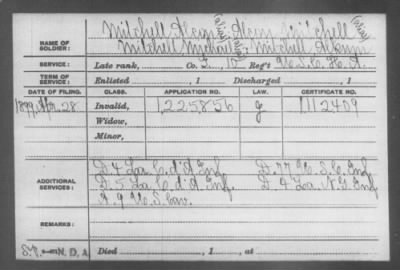 Mitchell (alias) Mitchell (alias)
NAME OF SOLDIER: Mitchell Michael (alias) Mitchell
SERVICE: Late rank, Co. 10 Reg't U.S.C.H.A.
TERM OF SERVICE: Enlisted , 1 Discharged , 1
DATE OF FILING. CLASS. APPLICATION NO. LAW. CERTIFICATE NO.
1899, Apr. 28 Invalid, 1,225,856 G 1112409
Widow,
Minor,
ADDITIONAL SERVICES: D. 4 La. C. d'A. Inf. D. 77 U.S.C. Inf.
D. 5 La. C. d'A. Inf. D. 4 La. N.G. Inf.
A. 9 U.S. Cav.
REMARKS:
N. D. A. Died , 1 , at